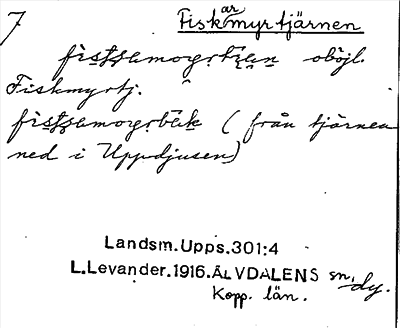 7
Fiskarmyrtjärnen
fistsamogrtjan oböjl.
Fiskmyrtj.
fistsamogrbäk ( från tjärnen
ned i Uppdjusen)
Landsm.Upps.301:4
L.Levander.1916.ÄLVDALENS sn, dy.
Kopp. län.